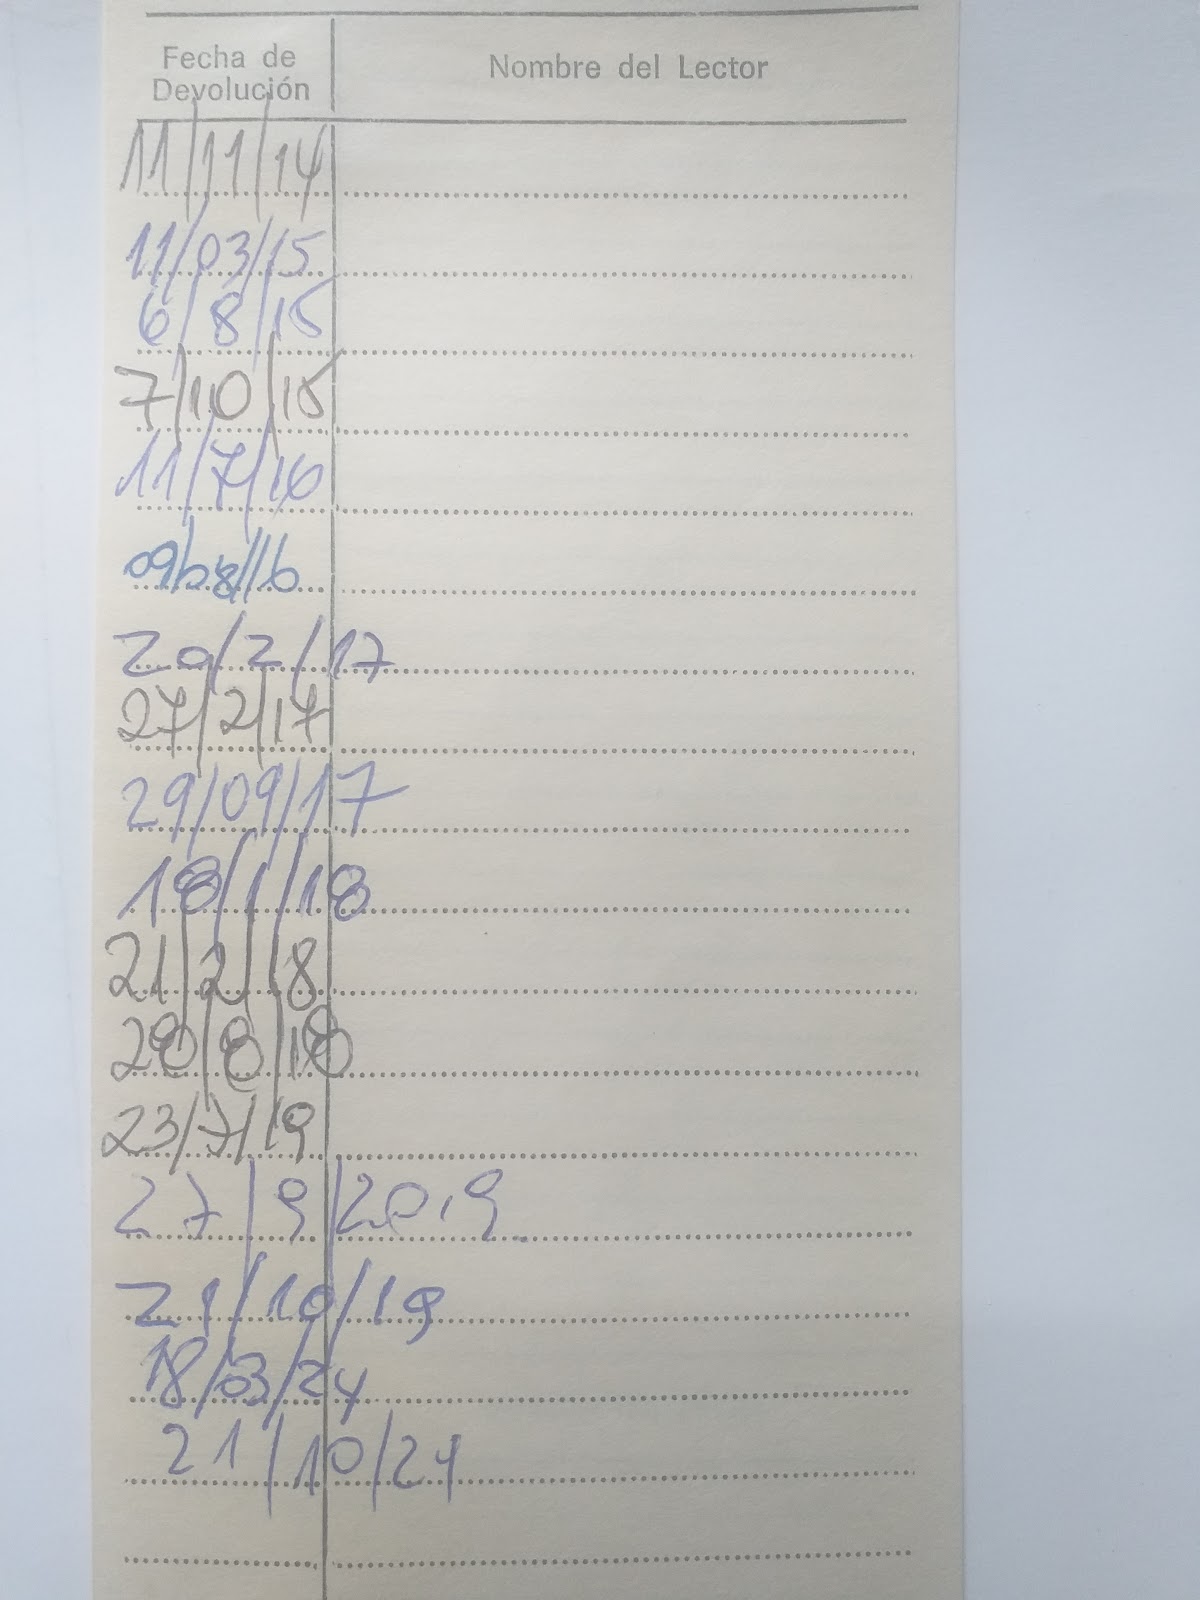 Fecha de
Devolución
Nombre del Lector
11/11/14
11/03/15
6/8/15
7/10/15
11/7/16
09/08/16
20/2/17
27/2/17
29/09/17
18/1/18
21/2/18
28/8/18
23/7/19
27/9/2019
21/10/19
18/03/24
21/10/24